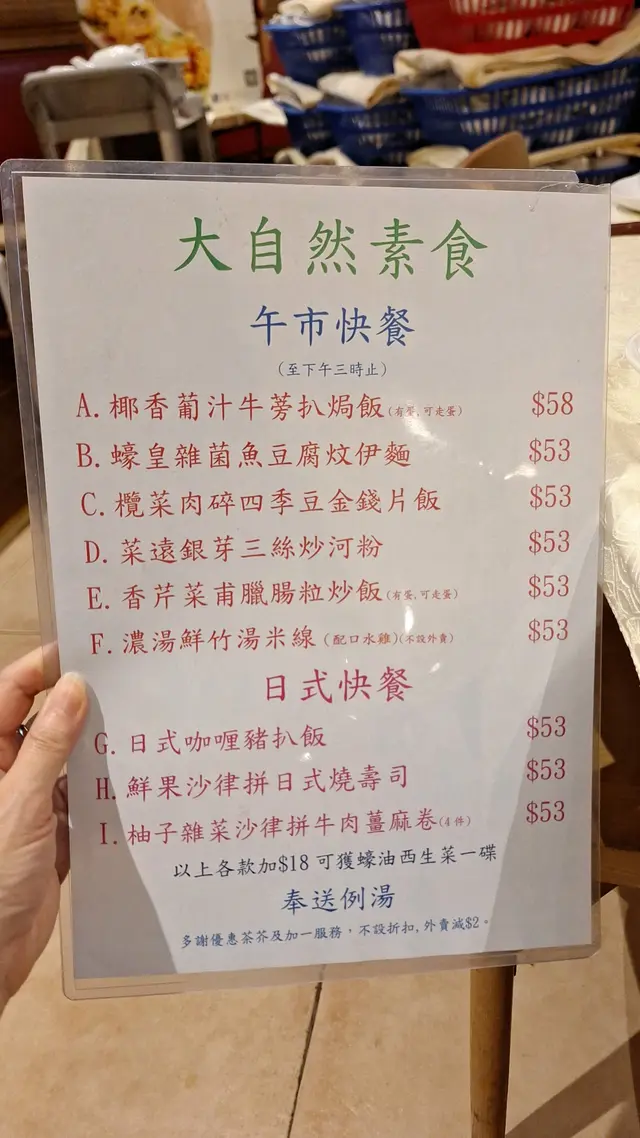 大自然素食
午市快餐
(至下午三時止)
A. 椰香葡汁牛蒡扒焗飯(有蛋,可走蛋) $58
B. 蠔皇雜菌魚豆腐炆伊麵 $53
C. 欖菜肉碎四季豆金錢片飯 $53
D. 菜遠銀芽三絲炒河粉 $53
E. 香芹菜甫臘腸粒炒飯(有蛋,可走蛋) $53
F. 濃湯鮮竹湯米線 (配口水雞)(不設外賣) $53
日式快餐
G. 日式咖喱豬扒飯 $53
H. 鮮果沙律拼日式燒壽司 $53
I. 柚子雜菜沙律拼牛肉薑麻卷(4 件) $53
以上各款加$18 可獲蠔油西生菜一碟
奉送例湯
多謝優惠茶芥及加一服務，不設折扣,外賣減$2。